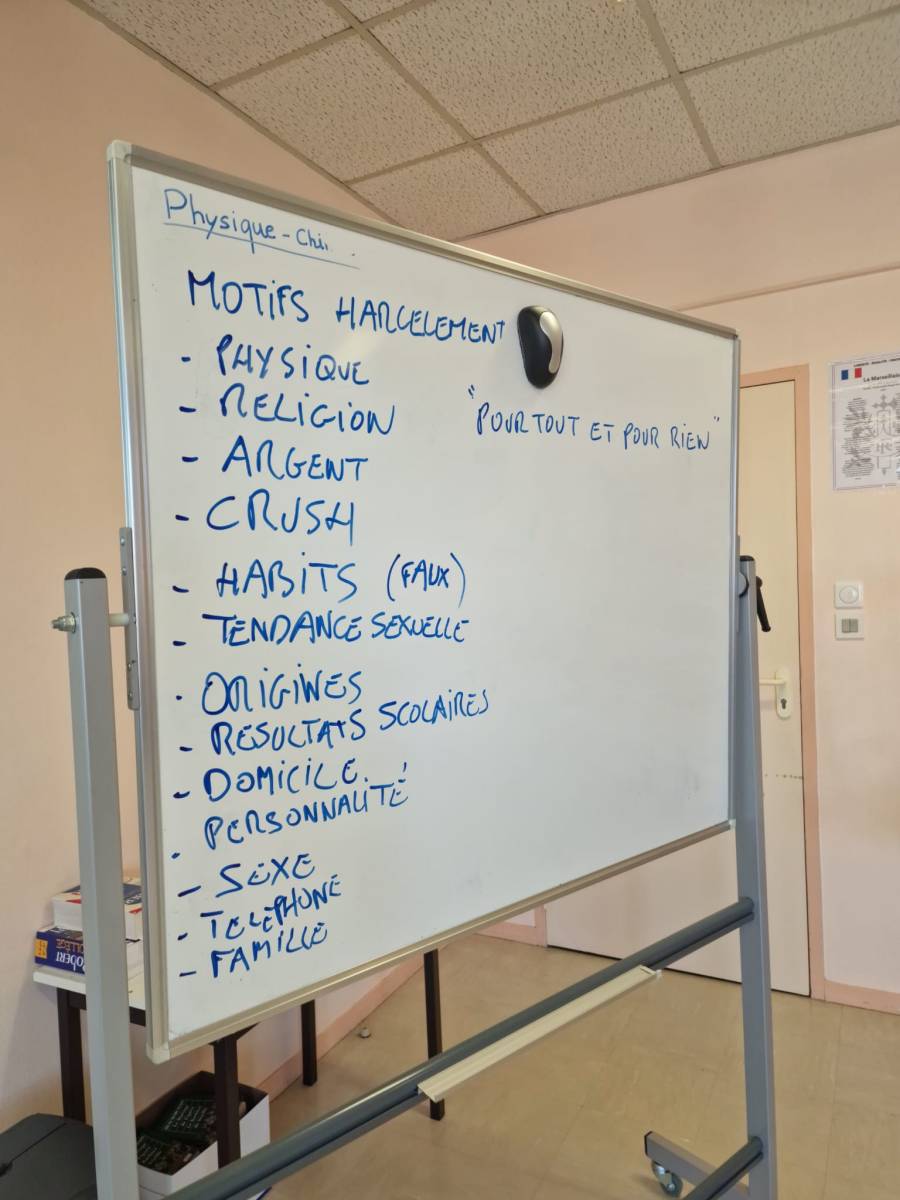 Physique - Chi.
MOTIFS HARCELEMENT
- PHYSIQUE
- RELIGION
"POUR TOUT ET POUR RIEN"
- ARGENT
- CRUSH
- HABITS (FAUX)
- TENDANCE SEXUELLE
- ORIGINES
- RESULTATS SCOLAIRES
- DOMICILE
- PERSONNALITÉ
- SEXE
- TELEPHONE
- FAMILLE
La Marseillaise
ROBERT
COLLÈGE